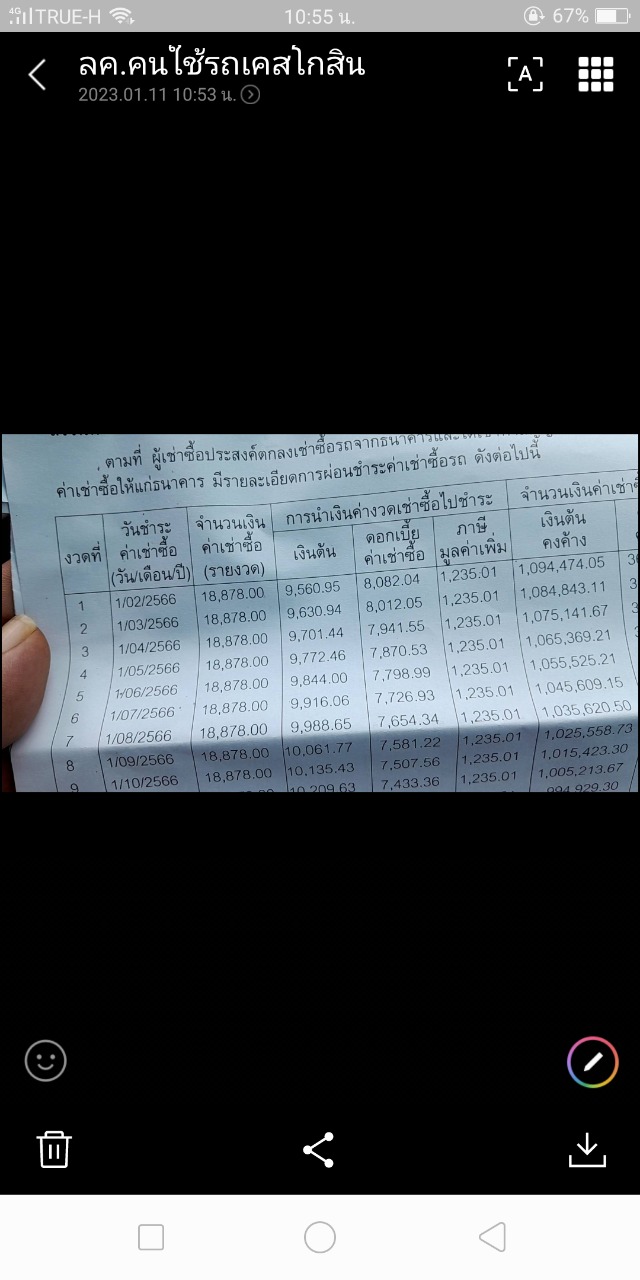 4G TRUE-H 10:55 น. 67%
ลค.คนใช้รถเคสโกสิน
2023.01.11 10:53 น.
A
ตามที่ ผู้เช่าซื้อประสงค์ตกลงเช่าซื้อรถจากธนาคารและได้
ค่าเช่าซื้อให้แก่ธนาคาร มีรายละเอียดการผ่อนชำระค่าเช่าซื้อรถ ดังต่อไปนี้
งวดที่ วันชำระ ค่าเช่าซื้อ (วัน/เดือน/ปี) จำนวนเงิน ค่าเช่าซื้อ (รายงวด) การนำเงินค่างวดเช่าซื้อไปชำระ จำนวนเงินค่าเช่าซื้อ
เงินต้น ดอกเบี้ย ค่าเช่าซื้อ ภาษี มูลค่าเพิ่ม เงินต้น คงค้าง
1 1/02/2566 18,878.00 9,560.95 8,082.04 1,235.01 1,094,474.05
2 1/03/2566 18,878.00 9,630.94 8,012.05 1,235.01 1,084,843.11
3 1/04/2566 18,878.00 9,701.44 7,941.55 1,235.01 1,075,141.67
4 1/05/2566 18,878.00 9,772.46 7,870.53 1,235.01 1,065,369.21
5 1/06/2566 18,878.00 9,844.00 7,798.99 1,235.01 1,055,525.21
6 1/07/2566 18,878.00 9,916.06 7,726.93 1,235.01 1,045,609.15
7 1/08/2566 18,878.00 9,988.65 7,654.34 1,235.01 1,035,620.50
8 1/09/2566 18,878.00 10,061.77 7,581.22 1,235.01 1,025,558.73
9 1/10/2566 18,878.00 10,135.43 7,507.56 1,235.01 1,015,423.30
10,209.63 7,433.36 1,235.01 1,005,213.67
994,929.30